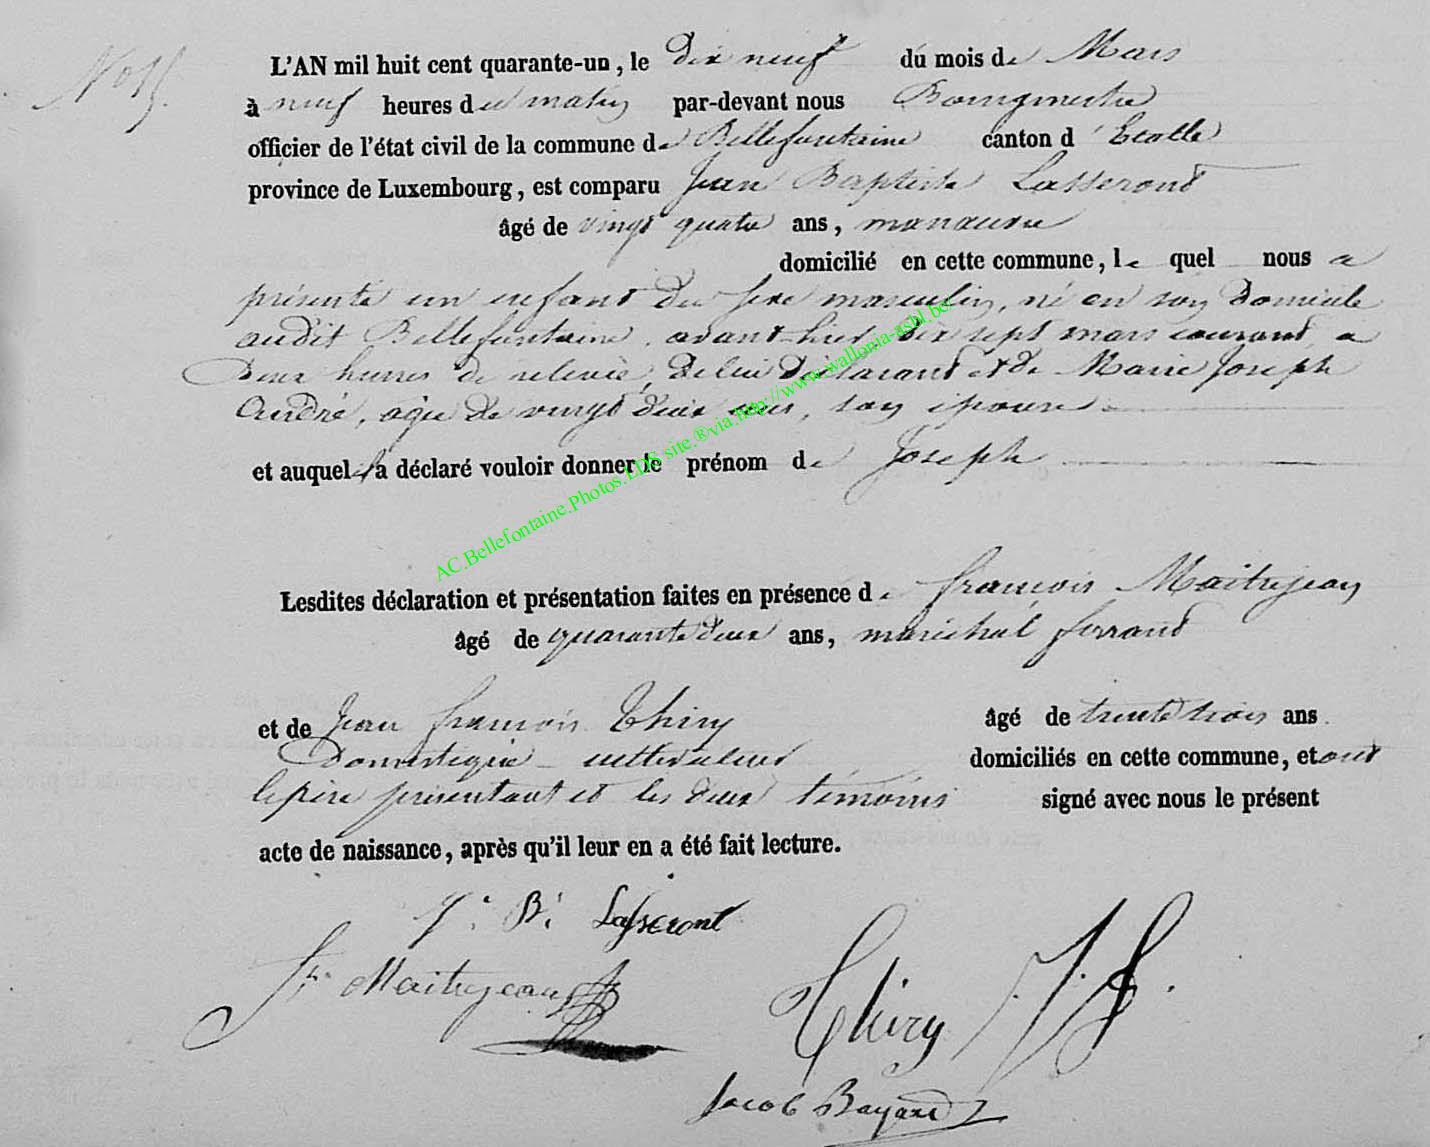 No 15.
L'AN mil huit cent quarante-un, le dix neuf du mois de Mars
à neuf heures du matin par-devant nous Bourgmestre
officier de l'état civil de la commune de Bellefontaine canton d'Etalle
province de Luxembourg, est comparu Jean Baptiste Lasseront
âgé de vingt quatre ans, manœuvre
domicilié en cette commune, le quel nous a
présenté un enfant du sexe masculin, né en son domicile
audit Bellefontaine, avant-hier dix sept mars courant, a
deux heures de relevée, de lui déclarant et de Marie Joseph
André, agée de vingt deux ans, son épouse
et auquel il a déclaré vouloir donner le prénom de Joseph
AC.Bellefontaine.Photos.LDS site.®via.http://www.wallonia-asbl.be/
Lesdites déclaration et présentation faites en présence de françois Maitrejean
âgé de quarante deux ans, maréchal ferrant
et de Jean françois Thiry âgé de trente trois ans
Domestique cultivateur domiciliés en cette commune, et ont
le père présentant et les deux témoins signé avec nous le présent
acte de naissance, après qu'il leur en a été fait lecture.
J. B. Lasseront
fs. Maitrejean
Thiry J. f.
Jacob Bayard